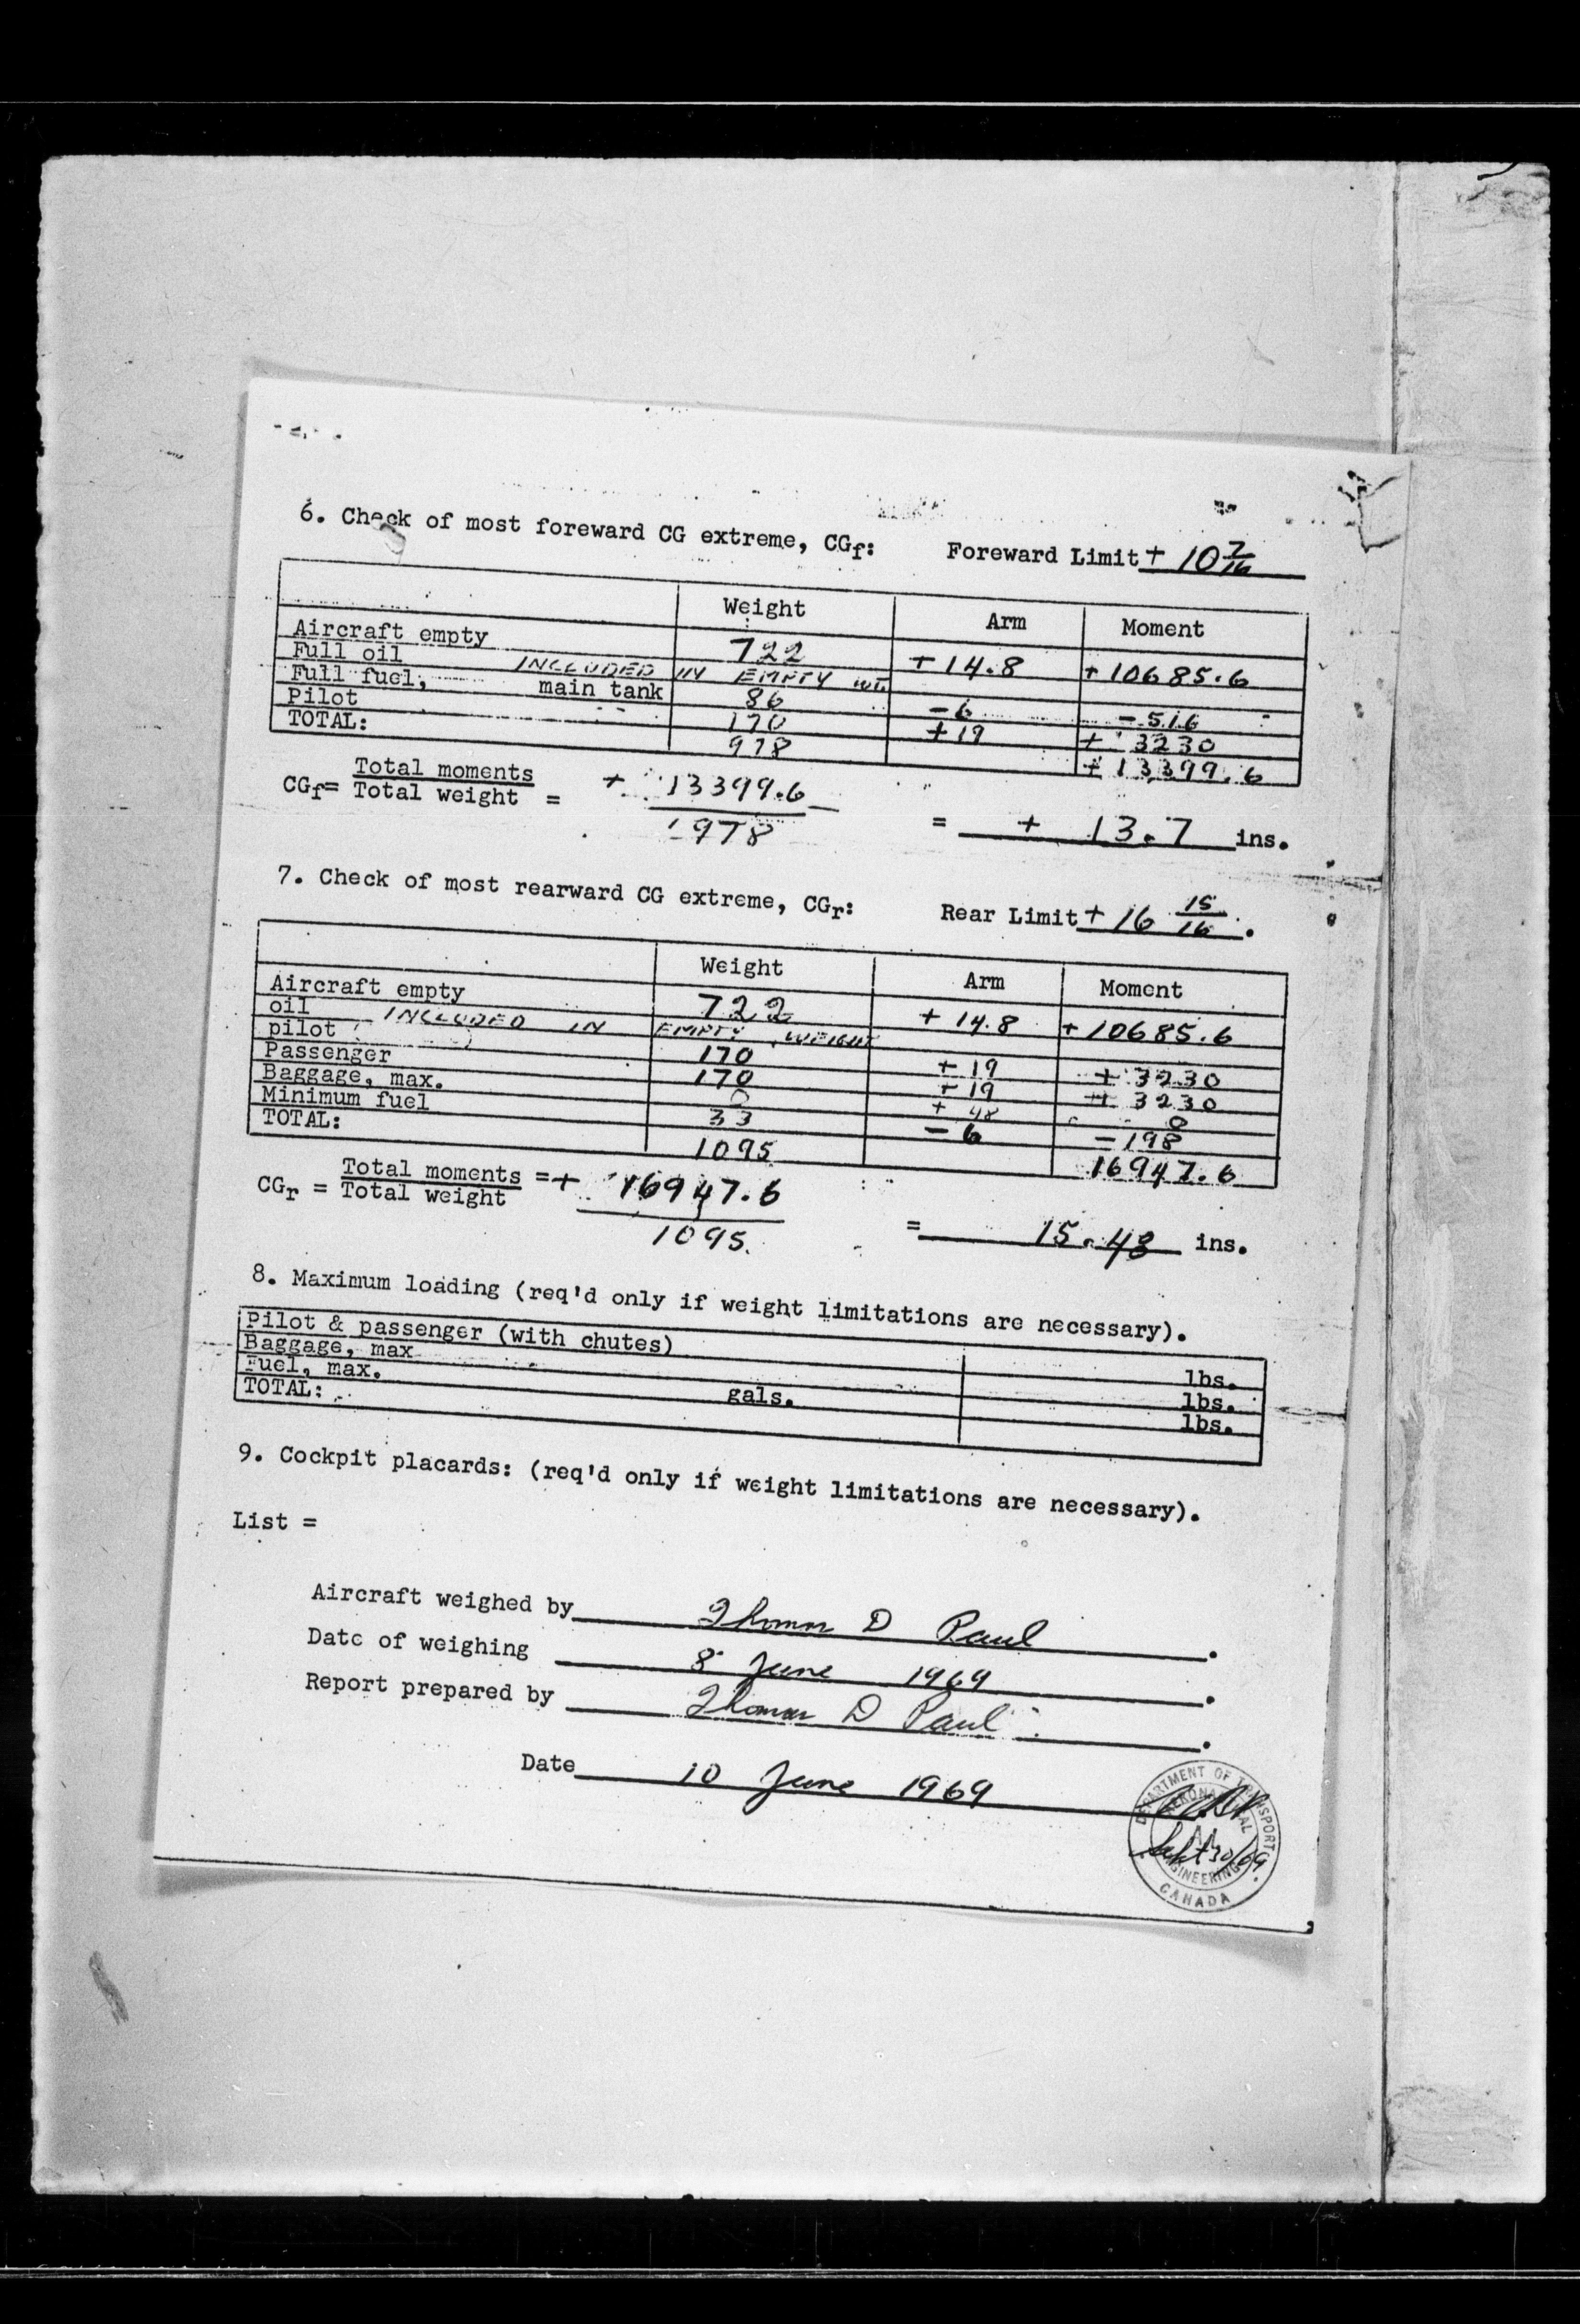 6. Check of most foreward CG extreme, CGf: Foreward Limit + 10 7/16
Weight Arm Moment
Aircraft empty 722 + 14.8 + 10685.6
Full oil INCLUDED IN EMPTY WT.
Full fuel, main tank 86 - 6 - 516
Pilot 170 + 19 + 3230
TOTAL: 978 + 13399.6
CGf= Total moments / Total weight = + 13399.6 / 978 = + 13.7 ins.
7. Check of most rearward CG extreme, CGr: Rear Limit + 16 15/16.
Weight Arm Moment
Aircraft empty 722 + 14.8 + 10685.6
oil INCLUDED IN EMPTY WEIGHT
pilot 170 + 19 + 3230
Passenger 170 + 19 + 3230
Baggage, max. 0 + 48 0
Minimum fuel 33 - 6 - 198
TOTAL: 1095 16947.6
CGr = Total moments / Total weight = + 16947.6 / 1095. = 15.48 ins.
8. Maximum loading (req'd only if weight limitations are necessary).
Pilot & passenger (with chutes) lbs.
Baggage, max lbs.
Fuel, max. gals. lbs.
TOTAL:
9. Cockpit placards: (req'd only if weight limitations are necessary).
List =
Aircraft weighed by Thomas D Paul.
Date of weighing 8 June 1969.
Report prepared by Thomas D Paul.
Date 10 June 1969
DEPARTMENT OF TRANSPORT
AERONAUTICAL
Sept 30/69
ENGINEERING
CANADA